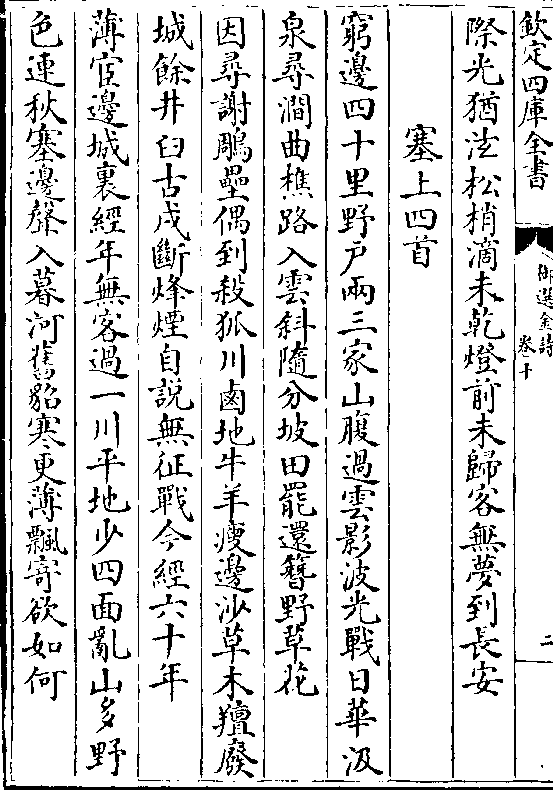 欽定四庫全書
御選金詩
卷十
二
際光猶泫松梢滴未乾燈前未歸客無夢到長安
塞上四首
窮邊四十里野戶兩三家山腹過雲影波光戰日華汲
泉尋澗曲樵路入雲斜隨分坡田罷還簪野草花
因尋謝鵰壘偶到殺狐川鹵地牛羊瘦邊沙草木羶廢
城餘井臼古戍斷烽煙自說無征戰今經六十年
薄宦邊城裏經年無客過一川平地少四面亂山多野
色連秋塞邊聲入暮河舊貂寒更薄飄寄欲如何